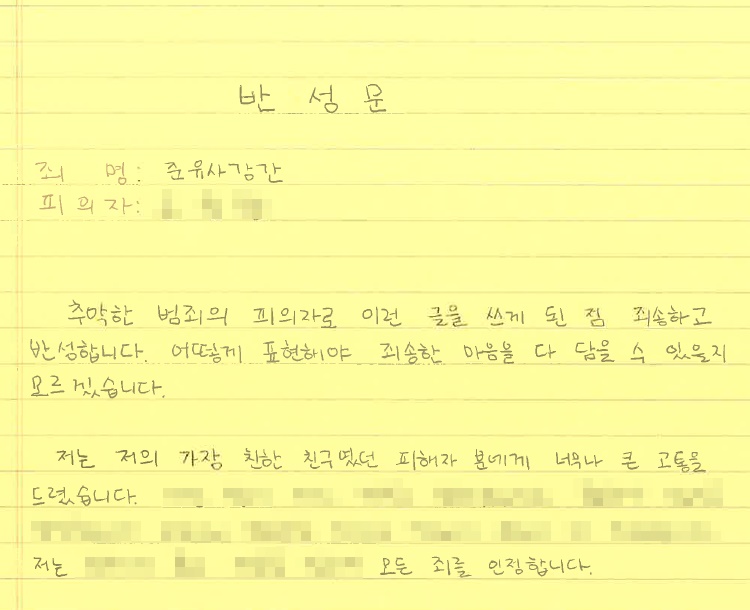 반 성 문
죄 명: 준유사강간
피의자:
추악한 범죄의 피의자로 이런 글을 쓰게 된 점 죄송하고
반성합니다. 어떻게 표현해야 죄송한 마음을 다 담을 수 있을지
모르겠습니다.
저는 저의 가장 친한 친구였던 피해자 분에게 너무나 큰 고통을
드렸습니다.
저는 모든 죄를 인정합니다.